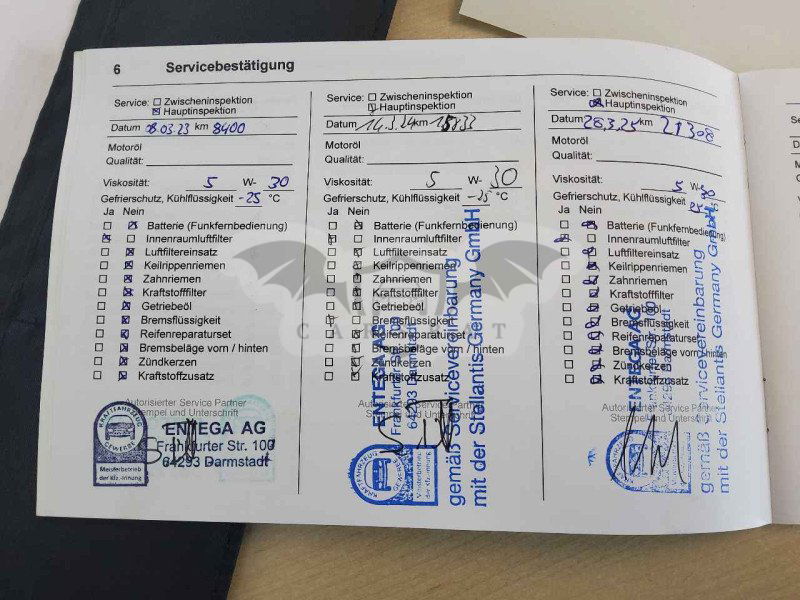 6 Servicebestätigung
Service: Zwischeninspektion
Hauptinspektion
Datum 08.03.23 km 8400
Motoröl
Qualität:
Viskosität: 5 W- 30
Gefrierschutz, Kühlflüssigkeit -25 °C
Ja Nein
Batterie (Funkfernbedienung)
Innenraumluftfilter
Luftfiltereinsatz
Keilrippenriemen
Zahnriemen
Kraftstofffilter
Getriebeöl
Bremsflüssigkeit
Reifenreparaturset
Bremsbeläge vorn / hinten
Zündkerzen
Kraftstoffzusatz
Autorisierter Service Partner
Stempel und Unterschrift
KRAFTFAHRZEUG
GEWERBE
Meisterbetrieb
der Kfz-Innung
ENTEGA AG
Frankfurter Str. 100
64293 Darmstadt
Service: Zwischeninspektion
Hauptinspektion
Datum 14.3.24 km 15833
Motoröl
Qualität:
Viskosität: 5 W- 30
Gefrierschutz, Kühlflüssigkeit -25 °C
Ja Nein
Batterie (Funkfernbedienung)
Innenraumluftfilter
Luftfiltereinsatz
Keilrippenriemen
Zahnriemen
Kraftstofffilter
Getriebeöl
Bremsflüssigkeit
Reifenreparaturset
Bremsbeläge vorn / hinten
Zündkerzen
Kraftstoffzusatz
Autorisierter Service Partner
Stempel und Unterschrift
KRAFTFAHRZEUG
GEWERBE
Meisterbetrieb
der Kfz-Innung
ENTEGA AG
Frankfurter Str.
64293 Darmstadt
gemäß Servicevereinbarung
mit der Stellantis Germany GmbH
Service: Zwischeninspektion
Hauptinspektion
Datum 28.3.25 km 21308
Motoröl
Qualität:
Viskosität: 5 W- 30
Gefrierschutz, Kühlflüssigkeit
Ja Nein
Batterie (Funkfernbedienung)
Innenraumluftfilter
Luftfiltereinsatz
Keilrippenriemen
Zahnriemen
Kraftstofffilter
Getriebeöl
Bremsflüssigkeit
Reifenreparaturset
Bremsbeläge vorn / hinten
Zündkerzen
Kraftstoffzusatz
Autorisierter Service Partner
Stempel und Unterschrift
ENTEGA AG
gemäß Servicevereinbarung
mit der Stellantis Germany GmbH